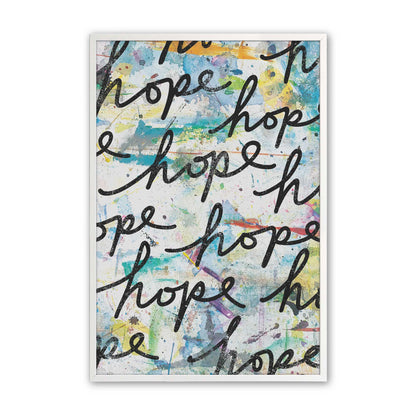 hope h
hop
e hope h
ope hope
hope h
pe hope